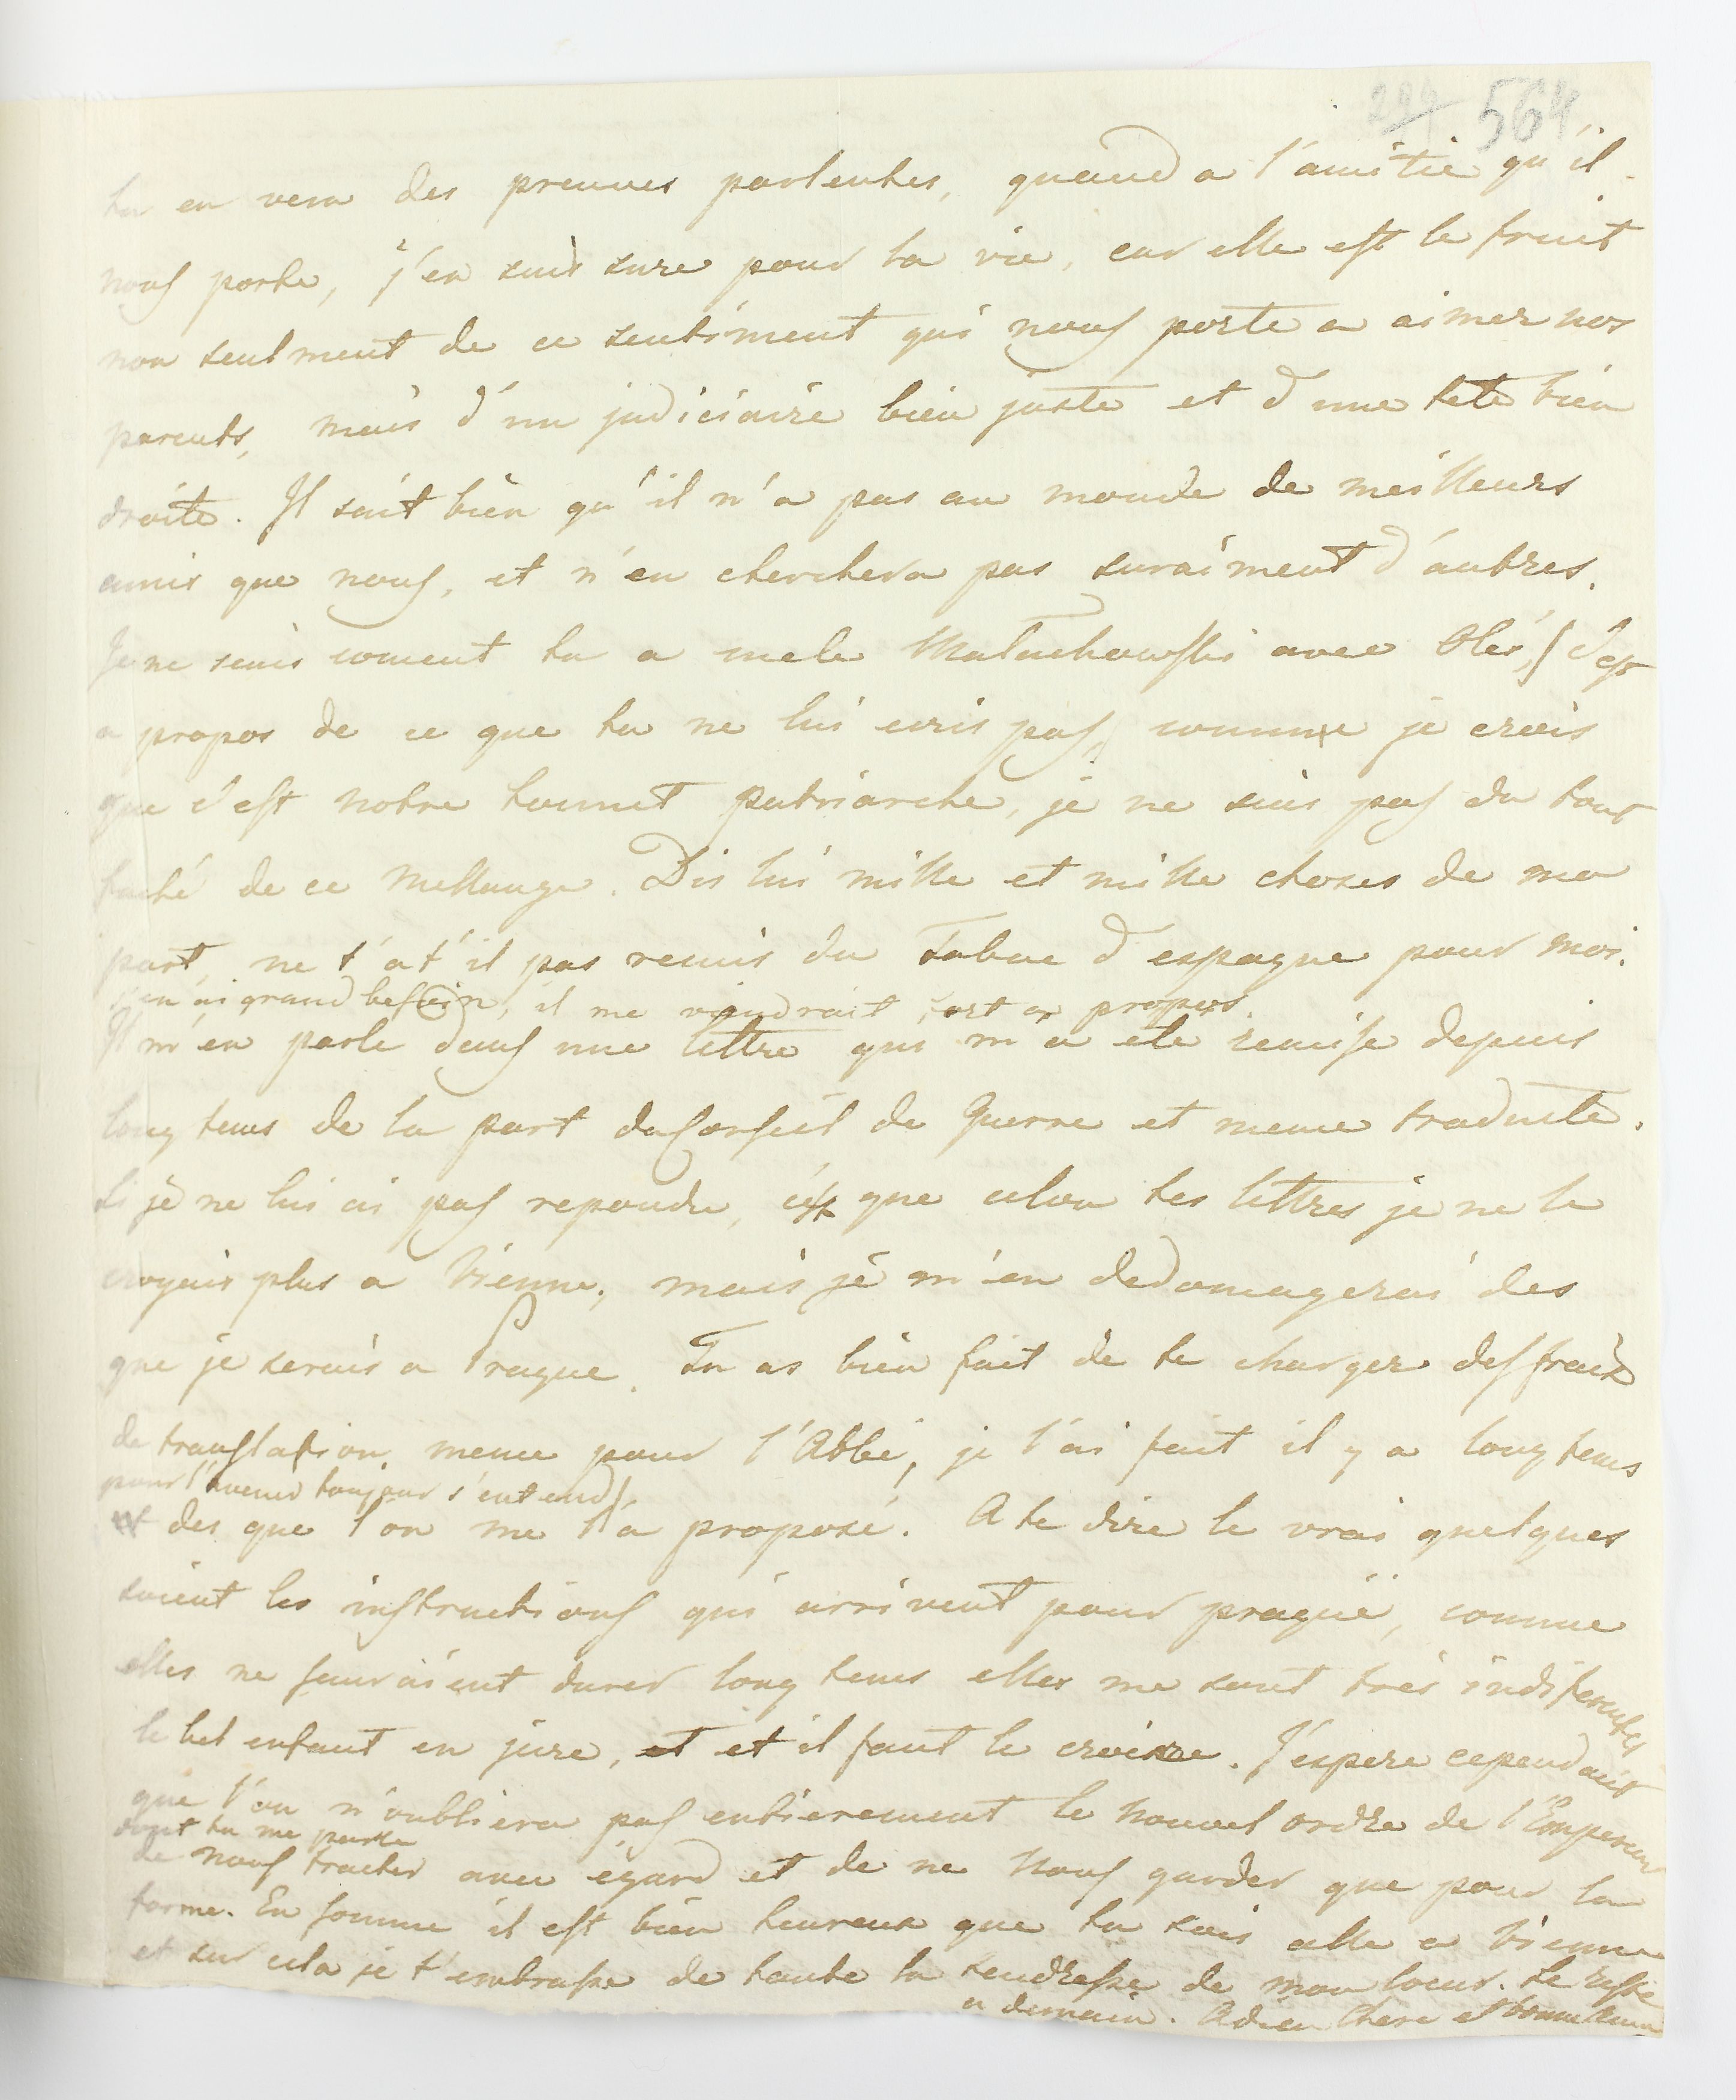 299 564
tu en vera des preuves parlentes, quand a l'amitie qu'il
nous porte, j'en suis sure pour la vie, car elle est le fruit
non seulment de ce sentiment qui nous porte a aimer nos
parents, mais d'un judiciaire bien juste et d'une tete bien
droite. Il sait bien qu'il n'a pas au monde de meilleurs
amis que nous, et n'en cherchera pas suraiment d'autres.
Je ne sais coment tu a mele Malachowski avec Olés, (c'est
a propos de ce que tu ne lui ecris pas) comme je crois
que c'est notre hounet patriarche, je ne suis pas du tout
faché de ce mellange. Dis lui mille et mille choses de ma
part, ne t'at'il pas remis du Tabac d'espagne pour moi.
j'en ai grand besoin, il me viendrait fort a propos.
Il m'en parle dans une lettre qui m'a ete remise depuis
long tems de la part du Conseil de Guerre et meme traduite.
Si je ne lui ai pas repondu, c'est que celon tes lettres je ne le
croyais plus a Vienne, mais je m'en dedomagerai des
que je serais a Prague. Tu as bien fait de te charger des fraix
de translation, meme pour l'Abbé, je l'ai fait il y a long tems
pour l'avenir toujour s'entend,
et des que l'on me l'a proposé. A te dire le vrai quelques
soient les instructions qui arrivent pour prague, comme
elles ne sauraient durer long tems elles me sont très indiferentes
le bel enfant en jure, et et il faut le croire. J'espere cependant
que l'on n'oubliera pas entierement le nouvel ordre de l'Empereur
dont tu me parle
de nous traiter avec égard et de ne nous garder que pour la
forme. En somme il est bien heureux que tu sois alle a Vienne
et sur cela je t'embrasse de toute la tendresse de mon coeur. Le reste
a demain. Adieu Chere et bonne Amie